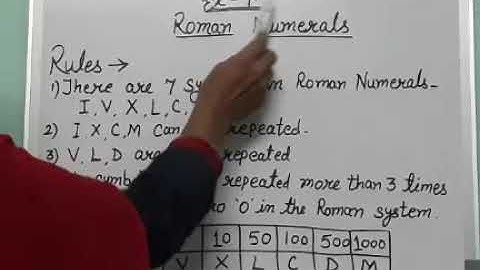 Roman Numerals
Rules →
1) There are 7 in Roman Numerals-
I, V, X, L, C,
2) I, X, C, M can repeated.
3) V, L, D are repeated
repeated more than 3 times
'0' in the Roman system.
10 50 100 500 1000
V X L C D M